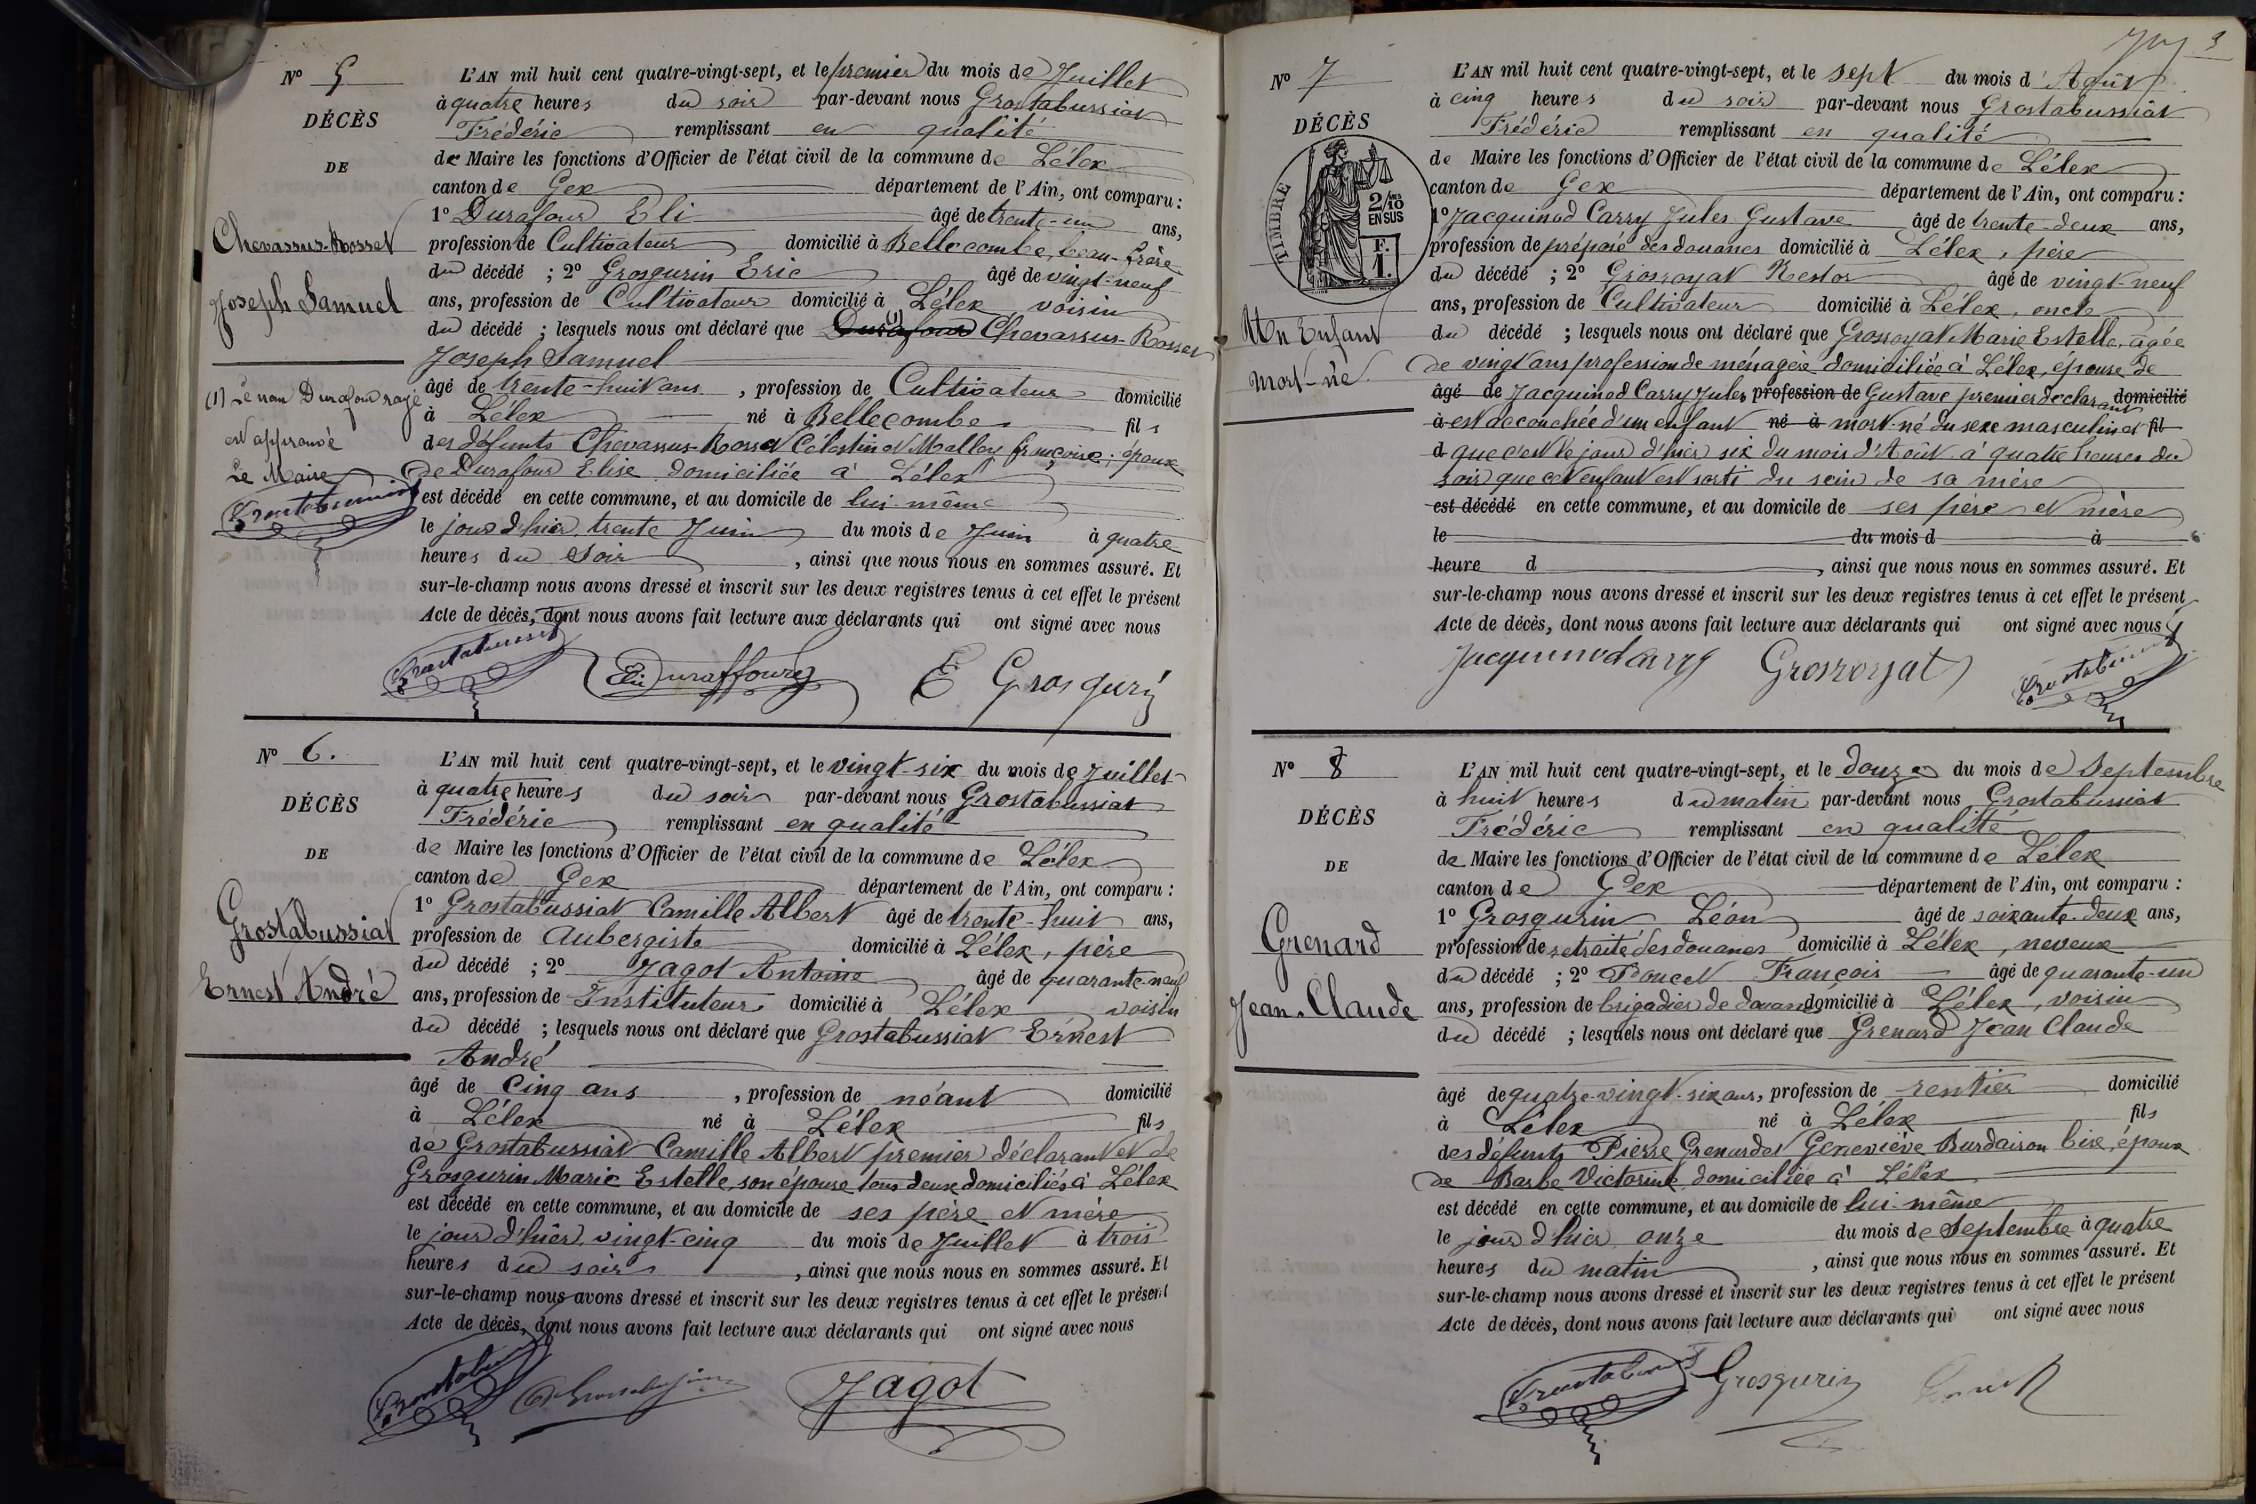 N° 5
DÉCÈS
DE
Chevassus-Rosset
Joseph Samuel
(1) Le nom Durafour rayé
est approuvé
Le Maire
L'AN mil huit cent quatre-vingt-sept, et le premier du mois de Juillet
à quatre heures du soir par-devant nous Grostabussiat
Frédéric remplissant en qualité
de Maire les fonctions d'Officier de l'état civil de la commune de Lélex
canton de Gex département de l'Ain, ont comparu :
1° Durafour Eli âgé de trente-un ans,
profession de Cultivateur domicilié à Bellecombe, beau-frère
du décédé ; 2° Grosgurin Eric âgé de vingt-neuf
ans, profession de Cultivateur domicilié à Lélex voisin
du décédé ; lesquels nous ont déclaré que (1) Durafour Chevassus-Rosset
Joseph Samuel
âgé de trente-huit ans, profession de Cultivateur domicilié
à Lélex né à Bellecombe fils
des défunts Chevassus-Rosset Célestin et Mallay françoise; époux
de Durafour Elise domiciliée à Lélex
est décédé en cette commune, et au domicile de lui-même
le jour d'hier trente Juin du mois de Juin à quatre
heures du Soir, ainsi que nous nous en sommes assuré. Et
sur-le-champ nous avons dressé et inscrit sur les deux registres tenus à cet effet le présent
Acte de décès, dont nous avons fait lecture aux déclarants qui ont signé avec nous
Grostabussiat Eli Duraffourg E Grosgurin
N° 6.
DÉCÈS
DE
Grostabussiat
Ernest André
L'AN mil huit cent quatre-vingt-sept, et le vingt-six du mois de Juillet
à quatre heures du soir par-devant nous Grostabussiat
Frédéric remplissant en qualité
de Maire les fonctions d'Officier de l'état civil de la commune de Lélex
canton de Gex département de l'Ain, ont comparu :
1° Grostabussiat Camille Albert âgé de trente-huit ans,
profession de Aubergiste domicilié à Lélex, père
du décédé ; 2° Jagot Antoine âgé de quarante-neuf
ans, profession de Instituteur domicilié à Lélex voisin
du décédé ; lesquels nous ont déclaré que Grostabussiat Ernest
André
âgé de Cinq ans, profession de néant domicilié
à Lélex né à Lélex fils
de Grostabussiat Camille Albert premier déclarant et de
Grosgurin Marie Estelle, son épouse tous deux domiciliés à Lélex
est décédé en cette commune, et au domicile de ses père et mère
le jour d'hier vingt-cinq du mois de Juillet à trois
heures du soir, ainsi que nous nous en sommes assuré. Et
sur-le-champ nous avons dressé et inscrit sur les deux registres tenus à cet effet le présent
Acte de décès, dont nous avons fait lecture aux déclarants qui ont signé avec nous
Grostabussiat Jagot
3
N° 7
DÉCÈS
TIMBRE
2/10
EN SUS
F.
1.
Un Enfant
mort-né.
L'AN mil huit cent quatre-vingt-sept, et le sept du mois d'Août
à cinq heures du soir par-devant nous Grostabussiat
Frédéric remplissant en qualité
de Maire les fonctions d'Officier de l'état civil de la commune de Lélex
canton de Gex département de l'Ain, ont comparu :
1° Jacquinod Carry Jules Gustave âgé de trente-deux ans,
profession de préposé des douanes domicilié à Lélex, père
du décédé ; 2° Grosroyat Nestor âgé de vingt-neuf
ans, profession de Cultivateur domicilié à Lélex, oncle
du décédé ; lesquels nous ont déclaré que Grosroyat Marie Estelle, âgée
de vingt ans profession de ménagère domiciliée à Lélex, épouse de
âgé de Jacquinod Carry Jules profession de Gustave premier déclarant domicilié
à est accouchée d'un enfant né à mort-né du sexe masculin et fil
d que c'est le jour d'hier six du mois d'Août à quatre heures du
soir que cet enfant est sorti du sein de sa mère
est décédé en cette commune, et au domicile de ses père et mère
le du mois d à
heure d, ainsi que nous nous en sommes assuré. Et
sur-le-champ nous avons dressé et inscrit sur les deux registres tenus à cet effet le présent
Acte de décès, dont nous avons fait lecture aux déclarants qui ont signé avec nous
Jacquinod Carry Grosroyat Grostabussiat
N° 8
DÉCÈS
DE
Grenard
Jean-Claude
L'AN mil huit cent quatre-vingt-sept, et le douze du mois de Septembre
à huit heures du matin par-devant nous Grostabussiat
Frédéric remplissant en qualité
de Maire les fonctions d'Officier de l'état civil de la commune de Lélex
canton de Gex département de l'Ain, ont comparu :
1° Grosgurin Léon âgé de soixante-deux ans,
profession de retraité des douanes domicilié à Lélex, neveux
du décédé ; 2° Poncet François âgé de quarante-un
ans, profession de brigadier de douanes domicilié à Lélex, voisin
du décédé ; lesquels nous ont déclaré que Grenard Jean Claude
âgé de quatre-vingt-six ans, profession de rentier domicilié
à Lélex né à Lélex fils
des défunts Pierre Grenard et Geneviève Burdairon bise, époux
de Barbe Victorine domiciliée à Lélex
est décédé en cette commune, et au domicile de lui-même
le jour d'hier onze du mois de Septembre à quatre
heures du matin, ainsi que nous nous en sommes assuré. Et
sur-le-champ nous avons dressé et inscrit sur les deux registres tenus à cet effet le présent
Acte de décès, dont nous avons fait lecture aux déclarants qui ont signé avec nous
Grostabussiat Grosgurin